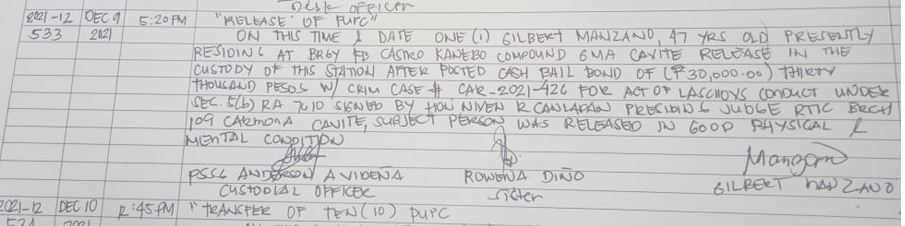 Desk officer
2021-12 DEC 9 5:20 PM "RELEASE OF PUPC"
533 2021 ON THIS TIME & DATE ONE (1) GILBERT MANZANO, 47 YRS OLD PRESENTLY
RESIDING AT BRGY FD CASTRO KANEBO COMPOUND GMA CAVITE RELEASE IN THE
CUSTODY OF THIS STATION AFTER POSTED CASH BAIL BOND OF (₱30,000.00) THIRTY
THOUSAND PESOS W/ CRIM CASE # CAR-2021-426 FOR ACT OF LASCIVIOUS CONDUCT UNDER
SEC. 5(b) RA 7610 SIGNED BY HON NIVEN R CANLAPAN PRESIDING JUDGE RTC BRCH
109 CARMONA CAVITE, SUBJECT PERSON WAS RELEASED IN GOOD PHYSICAL &
MENTAL CONDITION
PSSG ANDERSON AVIDENA ROWENA DIÑO GILBERT MANZANO
CUSTODIAL OFFICER Sister
2021-12 DEC 10 2:45 PM "TRANSFER OF TEN (10) PUPC
534 2021